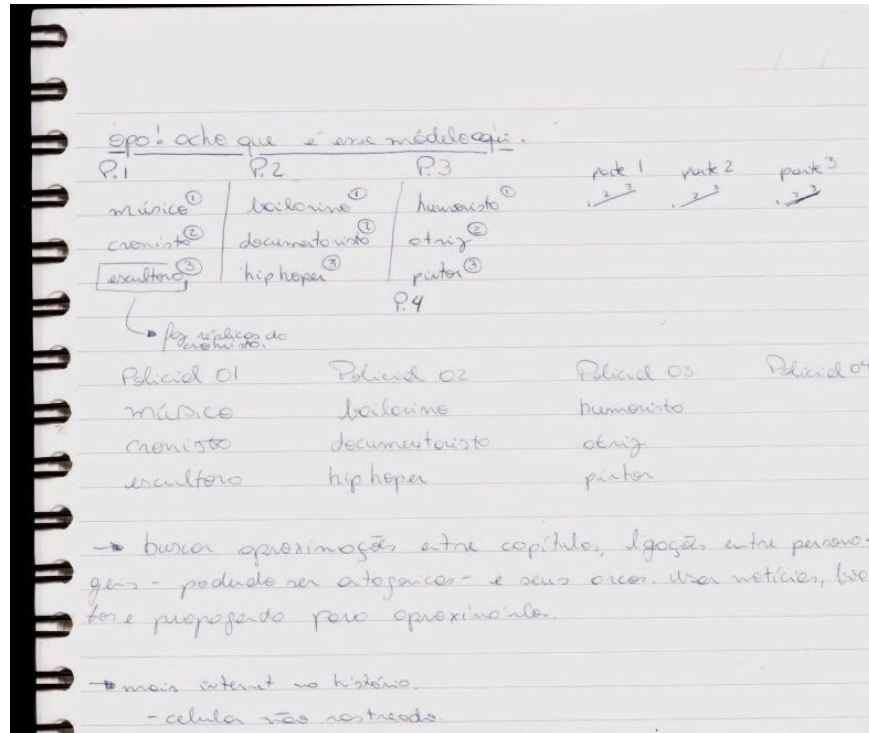 opa! acho que é esse módelo aqui.
P.1 P.2 P.3 parte 1 parte 2 parte 3
músico ① bailarina ① humorista ① 1 2 3 1 2 3 1 2 3
cronista ② documentarista ② atriz ②
escultora ③ hip hoper ③ pintor ③
P.4
faz réplicas do
cronista.
Policial 01 Policial 02 Policial 03 Policial 04
músico bailarina humorista
cronista documentarista atriz
escultora hip hoper pintor
→ buscar aproximações entre capítulos, ligações entre persona-
gens - podendo ser antagônicas - e seus arcos. Usar notícias, boa-
tos e propaganda para aproximá-los.
→ mais internet na história.
- celular não rastreado.